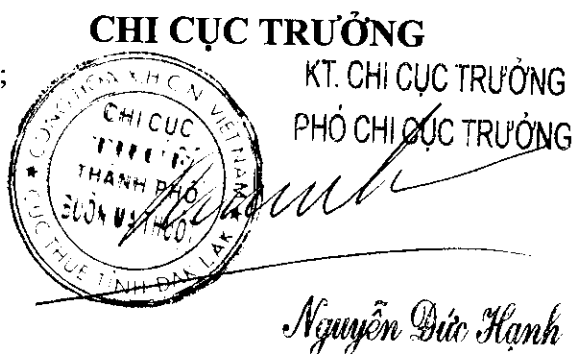 CHI CỤC TRƯỞNG
;
KT. CHI CỤC TRƯỞNG
PHÓ CHI CỤC TRƯỞNG
CỘNG HÒA X.H.C.N VIỆT NAM
CHI CỤC
THÀNH PHỐ
BUÔN MA THUỘT
CỤC THUẾ TỈNH ĐĂK LĂK
Nguyễn Đức Hạnh